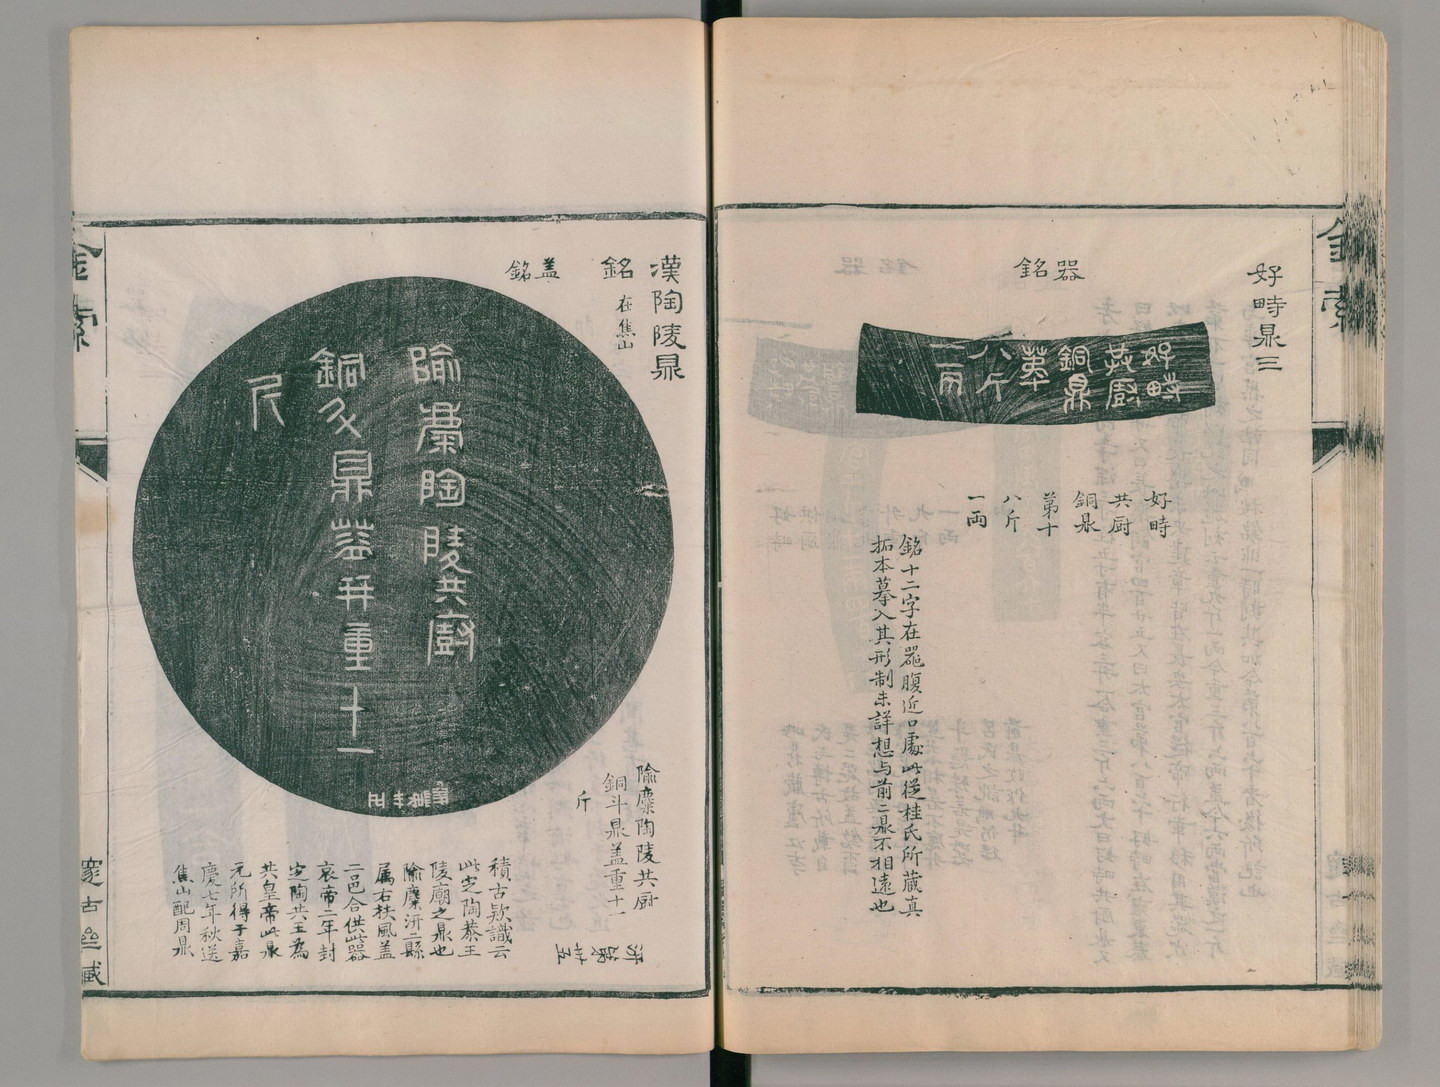 好畤鼎三
器銘
好畤
共廚
銅鼎
第十
八斤
一兩
好畤
共厨
銅鼎
第十
八斤
一兩
銘十二字在器腹近口處此從桂氏所藏真
拓本摹入其形制未詳想与前二鼎不相遠也
金索
漢陶陵鼎
銘 在焦山
蓋銘
隃麋陶陵共廚
銅斗鼎蓋并重十一
斤
隃麋陶陵共厨
銅斗鼎盖重十一
斤
汧第廿五
積古欵識云
此定陶恭王
陵廟之鼎也
隃麋汧二縣
属右扶風盖
二邑合供此器
哀帝二年封
定陶共王為
共皇帝此鼎
元所得于嘉
慶七年秋送
焦山配周鼎
金索
邃古齋藏